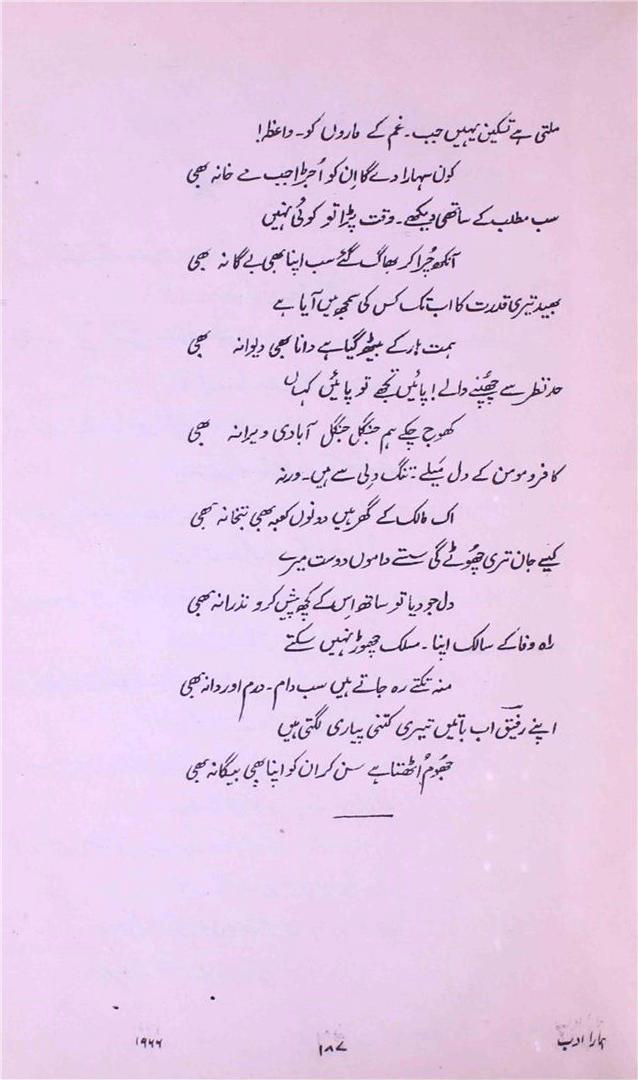 ملتی ہے تسکین یہیں جب ۔ غم کے ماروں کو ۔ واعظ!
کون سہارا دے گا اِن کو اُجڑا جب مے خانہ بھی
سب مطلب کے ساتھی دیکھے ۔ وقت پڑا تو کوئی نہیں
آنکھ چُرا کر بھاگ گئے سب اپنا بھی بے گانہ بھی
بھید تیری قدرت کا اب تک کس کی سمجھ میں آیا ہے
ہمت ہار کے بیٹھ گیا ہے دانا بھی دیوانہ بھی
حد نظر سے چھُپنے والے! پائیں تجھے تو پائیں کہاں
کھوج چکے ہم جنگل جنگل آبادی ویرانہ بھی
کافر و مومن کے دل میلے ۔ تنگ دِلی سے ہیں ۔ ورنہ
اک مالک کے گھر ہیں دونوں کعبہ بھی بتخانہ بھی
کیسے جان تری چھُوٹے گی سستے داموں دوست میرے
دل جو دیا تو ساتھ اِس کے کچھ پیش کرو نذرانہ بھی
راہ وفا کے سالک اپنا ۔ مسلک چھوڑ نہیں سکتے
منہ تکتے رہ جاتے ہیں سب دام ۔ درم اور دانہ بھی
اپنے رفیق اب باتیں تیری کتنی پیاری لگتی ہیں
جھُوم اُٹھتا ہے سن کر ان کو اپنا بھی بیگانہ بھی
ہمارا ادب
۱۸۷
۱۹۶۶